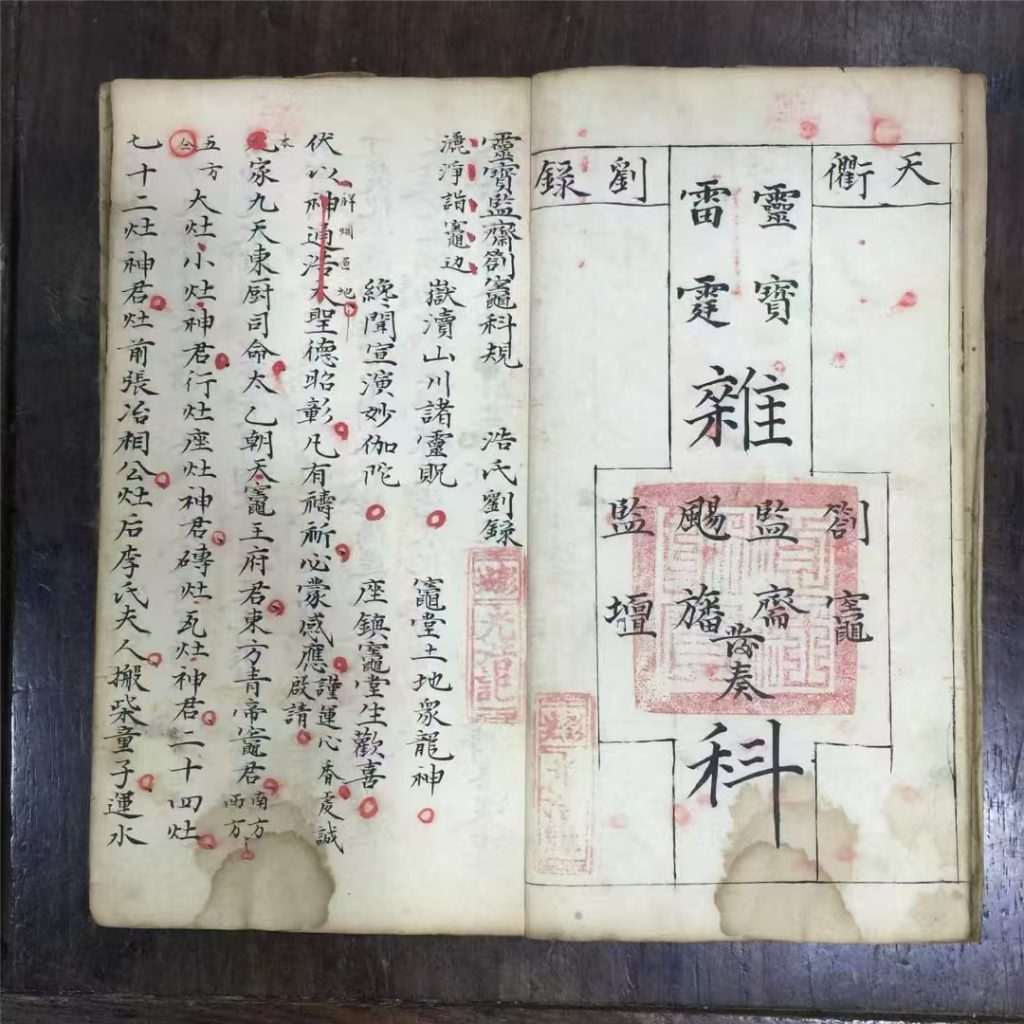 天衢
靈寶
雷霆
雜
劉錄
劄竈
監齋
颺旛
監壇
發奏
科
靈寶監齋劄竈科規 浩氏劉錄
灑淨詣竈边
嶽瀆山川諸靈貺 竈堂土地眾龍神
纔聞宣演妙伽陀 座鎮竈堂生歡喜
祥烟匝地
伏以神通浩大聖德昭彰凡有禱祈心蒙感應謹運心香虔誠啟請
本家九天東厨司命太乙朝天竈王府君東方青帝竈君南方西方
五方大灶小灶神君行灶座灶神君磚灶瓦灶神君二十四灶
七十二灶神君灶前張冶相公灶后李氏夫人搬柴童子運水